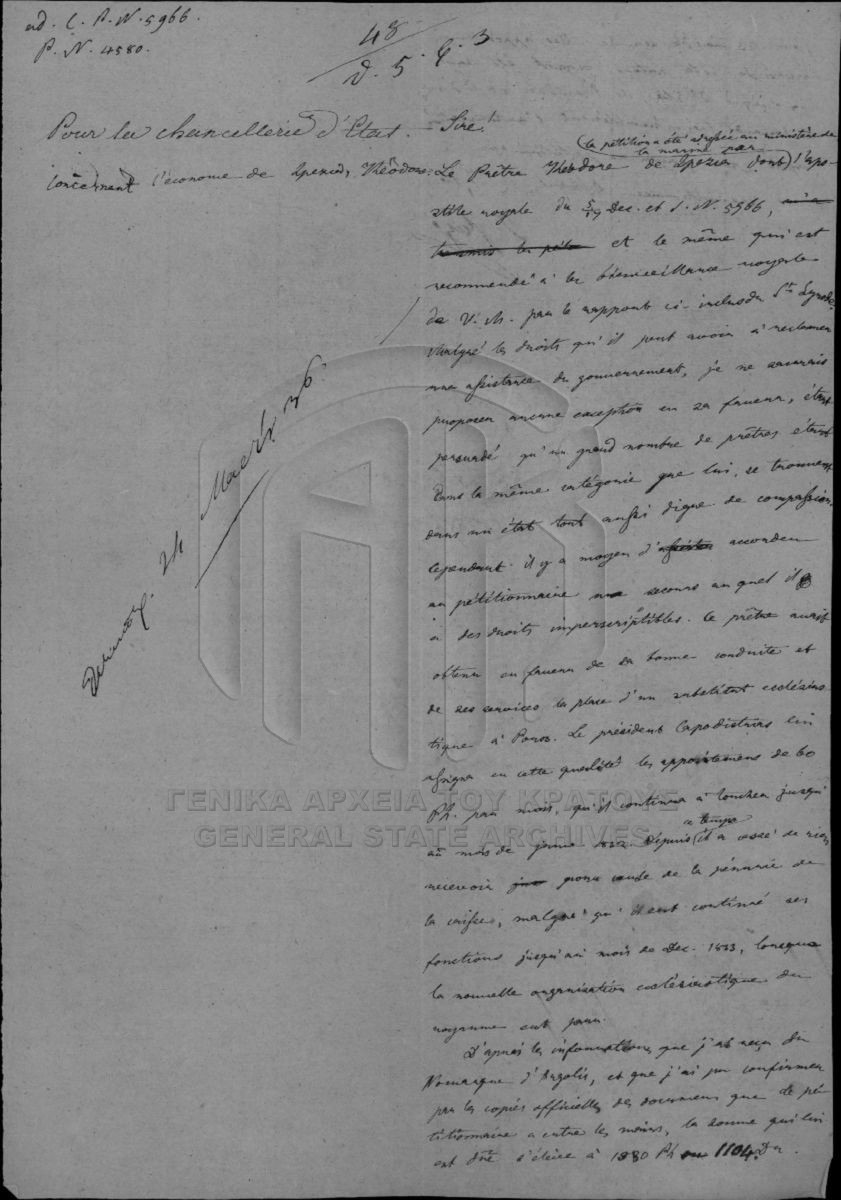 ad. C. P. N. 5966.
P. N. 4580.
48
D. 5. 6. 3
Pour la chancellerie d'Etat.
Sire!
(la pétition a été adressée au ministère de
la marine par
concernant l'économe de Spezia, Théodore.
Le Prêtre Théodore de Spezia dont) l'apo-
stile royale du 5/17 Dec. et s. N. 5966,
transmis la et le même qui est
recommandé à la bienveillance royale
de V. M. par le rapport ci-inclus du St. Synode.
Malgré les droits qu'il peut avoir à reclamer
une assistance du gouvernement, je ne saurais
proposer aucune exception en sa faveur, étant
persuadé qu'un grand nombre de prêtres étant
dans la même catégorie que lui, se trouvent
dans un état tout aussi digne de compassion.
Cependant il y a moyen d' accorder
au pétitionnaire un secours au quel il
a des droits imperscriptibles. Ce prêtre avait
obtenu en faveur de sa bonne conduite et
de ses services la place d'un substitut ecclésias-
tique à Poros. Le président Capodistrias lui
assigna en cette qualité les appointemens de 60
Ph. par mois, qu'il continua à toucher jusqu'
au mois de 1832. Depuis ce temps il a cessé de rien
recevoir pour cause de la pénurie de
la caisse, malgré qu'il eut continué ses
fonctions jusqu'au mois de Dec. 1833, lorsque
la nouvelle organisation ecclésiastique du
royaume eut paru.
D'après les informations que j'ai reçu du
Nomarque d'Argolis, et que j'ai pu confirmer
par les copies officielles des documens que le pé-
titionnaire a entre les mains, la somme qui lui
est due s'élève à 1080 Ph ou 1104 Dr
24 36.
ΓΕΝΙΚΑ ΑΡΧΕΙΑ ΤΟΥ ΚΡΑΤΟΥΣ
GENERAL STATE ARCHIVES